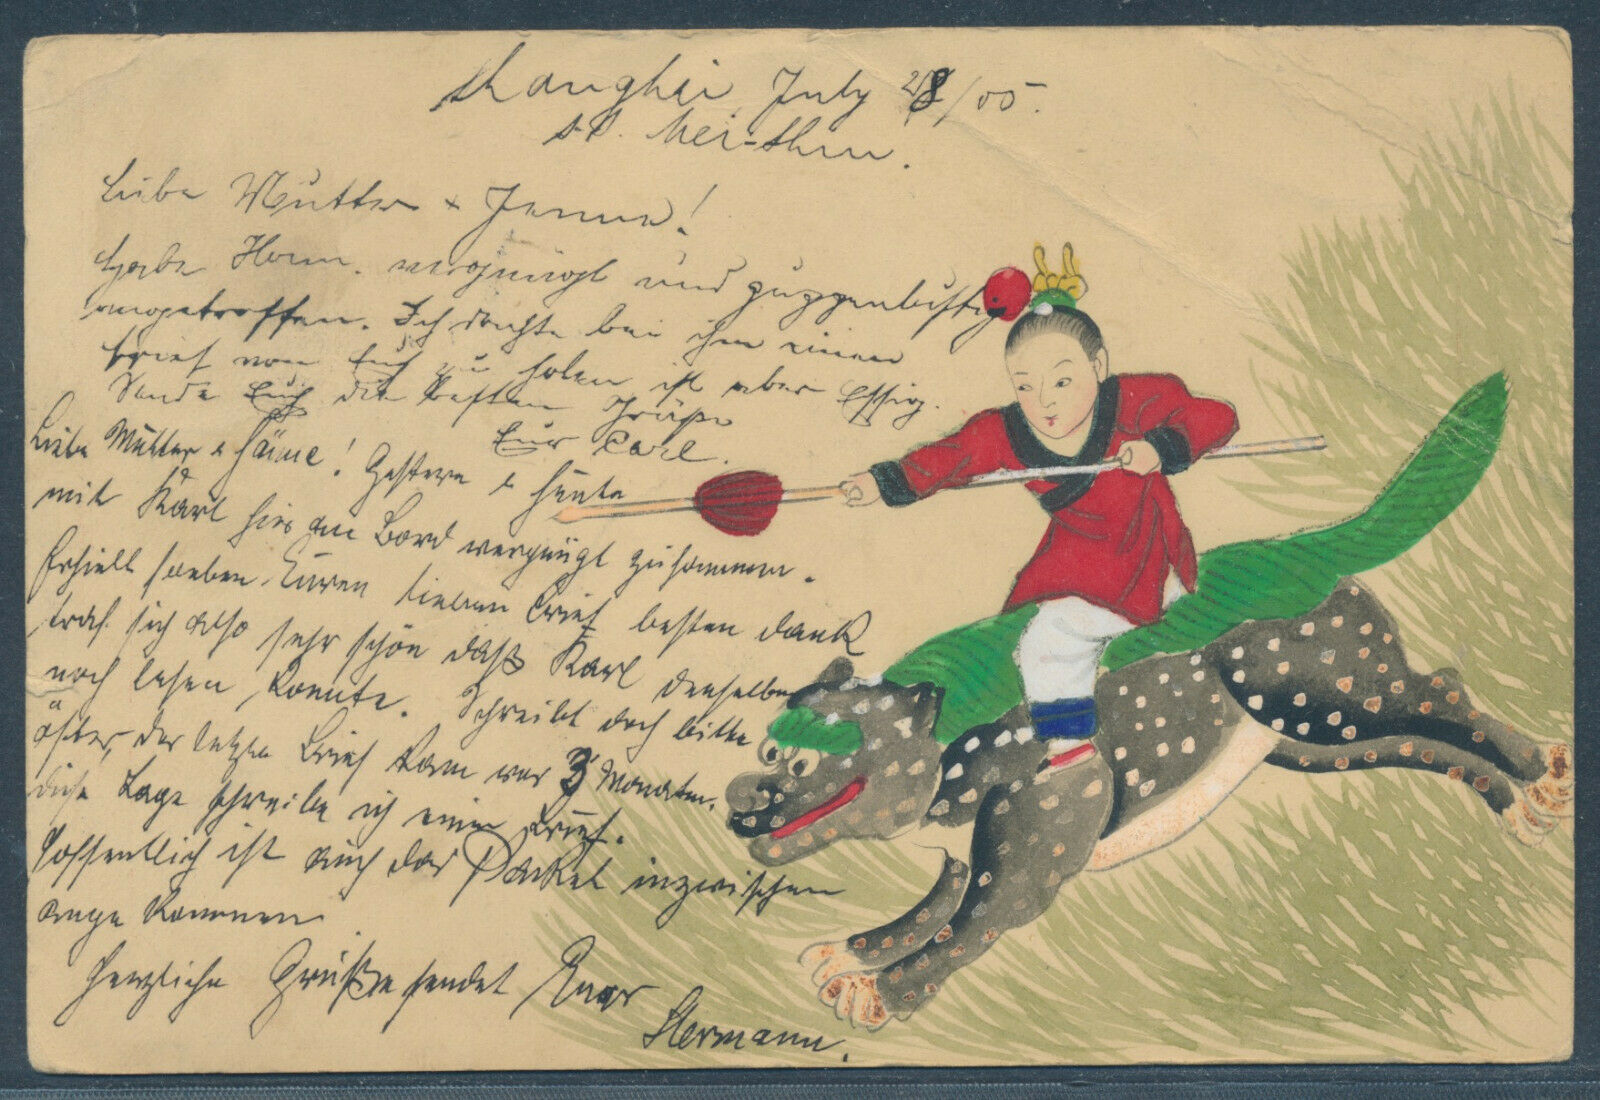 Shanghai July 28/05.
s.d. Mei-Shun.
Liebe Mutter + Janne!
Habe Herm. vergnügt und quggenlustig
angetroffen. Ich dachte bei ihm einen
Brief von Euch zu holen ist aber Essig.
Sende Euch die besten Grüße
Euer Carl.
Liebe Mutter & Jänne! Gestern & heute
mit Karl hier an Bord vergnügt zusammen.
Erhielt soeben Euren lieben Brief besten Dank
traf sich also sehr schön daß Karl denselben
noch lesen konnte. Schreibt doch bitte
öfter, der letzte Brief kam vor 3 Monaten.
diese Tage schreibe ich einen Brief.
Hoffentlich ist auch das Packet inzwischen
angekommen
Herzliche Grüße sendet Euer
Hermann.